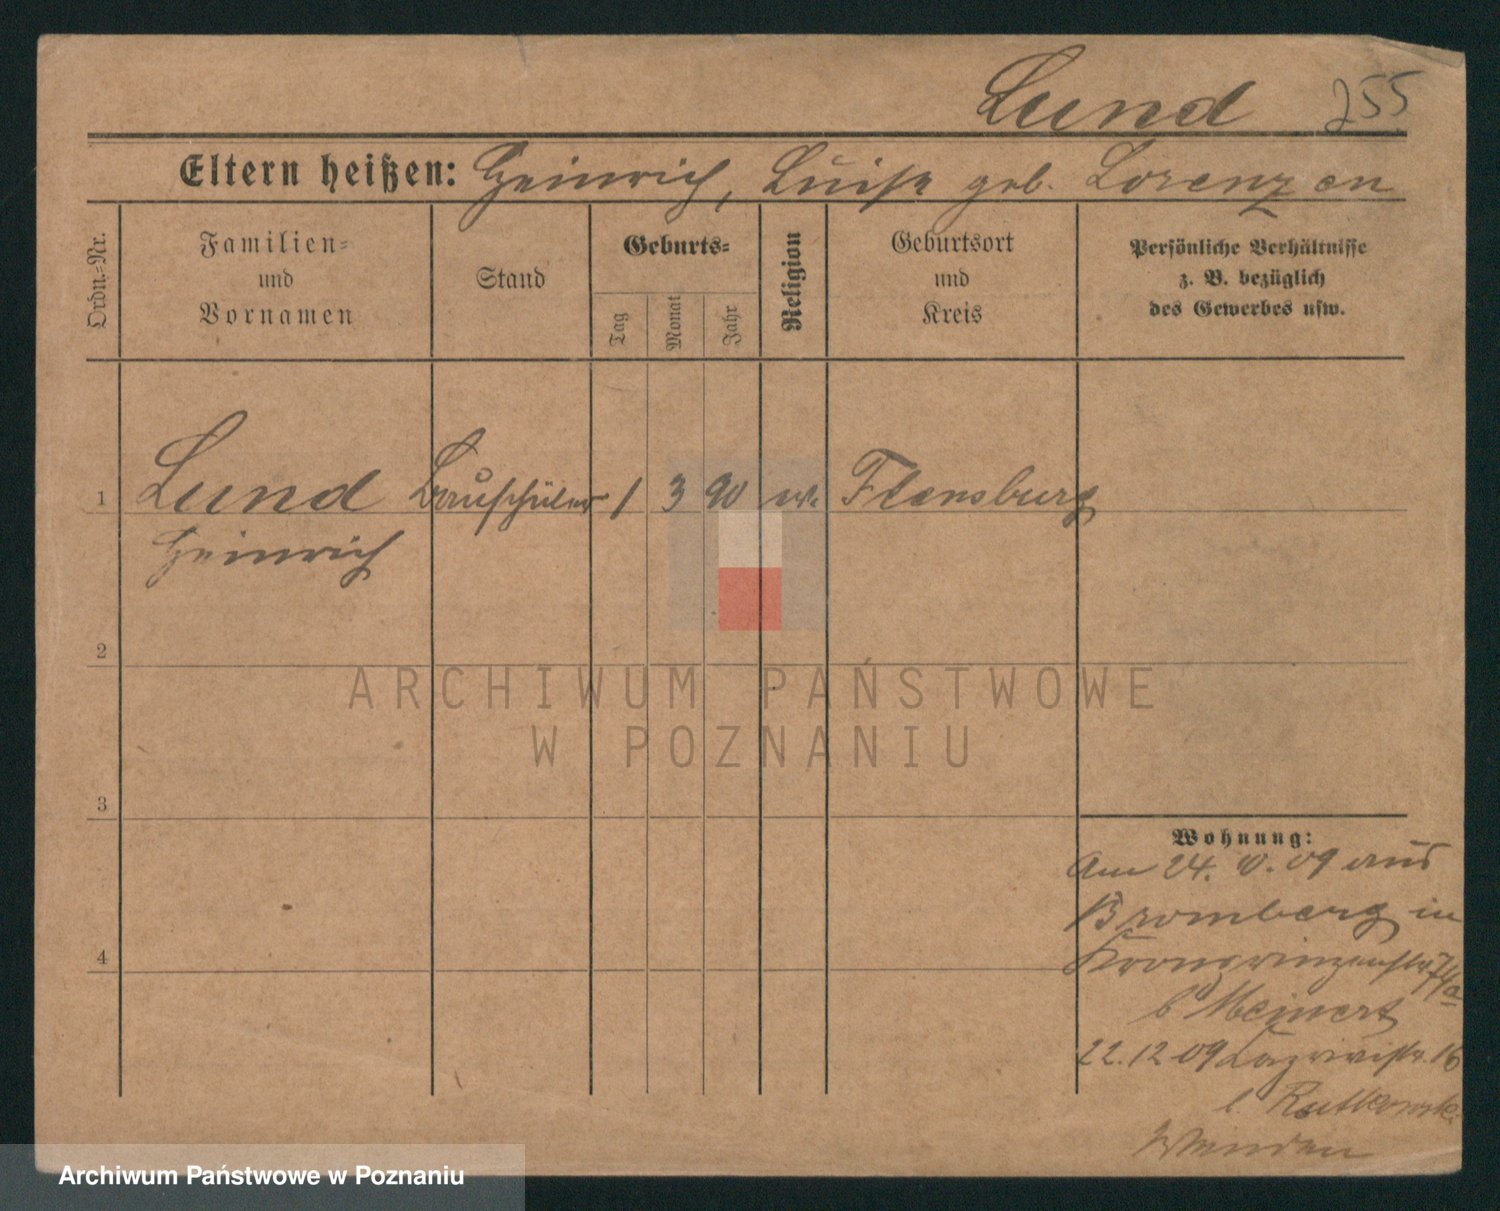 Lund 255
Eltern heißen: Heinrich, Luise geb. Lorenzen
Ordn.=Nr.
Familien=
und
Vornamen
Stand
Geburts=
Tag
Monat
Jahr
Religion
Geburtsort
und
Kreis
Persönliche Verhältnisse
z. B. bezüglich
des Gewerbes usw.
1 Lund Bauschüler 1 3 90 ev. Flensburg
Heinrich
2
3
4
Wohnung:
Am 24. 10. 09 aus
Bromberg in
Kronprinzenstr. 74a
b Meinert
22.12 09 16
b. Rutkowski
Wenden
ARCHIWUM PAŃSTWOWE
W POZNANIU
Archiwum Państwowe w Poznaniu